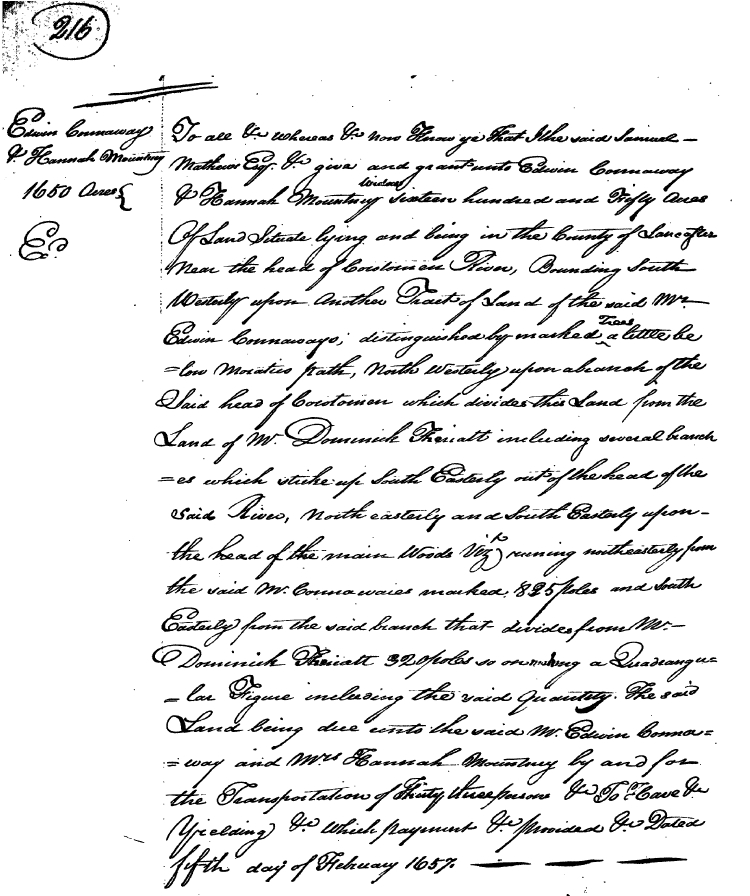 216
Edwin Connaway
& Hannah Mountney
1650 Acres {
Ed.
To all &c. whereas &c. now Know ye That I the said Samuel –
Mathews Esq. &c. give and grant unto Edwin Connaway
& Hannah Mountney widow sixteen hundred and Fifty Acres
Of Land Situate lying and being in the County of Lancaster
Near the head of Corotomen River, Bounding South
Westerly upon another Tract of Land of the said Mr.
Edwin Connaways; distinguished by marked Trees a little be
=low Moratico path, North Westerly upon a branch of the
Said head of Corotomen which divides this Land from the
Land of Mr. Dominick Theriatt including several branch
=es which strike up South Easterly out of the head of the
said River, North easterly and South Easterly upon –
the head of the main Woods Vizt.) runing northeasterly from
the said Mr. Connawaies marked 825 poles and South
Easterly from the said branch that divides from Mr. –
Dominick Theriatt 320 poles so on making a Quadrangu=
=lar Figure including the said Quantity. The said
Land being due unto the said Mr. Edwin Conna=
=way and Mrs Hannah Mountney by and for
the Transportation of Thirty three persons &c. To Have &c
Yielding &c. which payment &c. provided &c. Dated
fifth day of February 1657. — — —